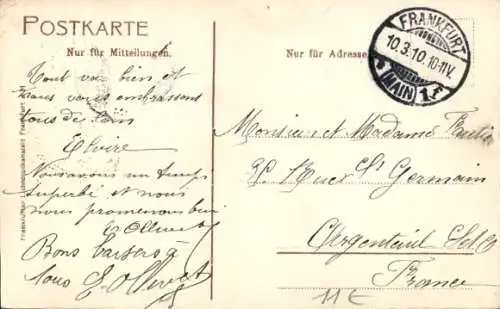 POSTKARTE
Nur für Mitteilungen.
Tout va bien et
nous vous embrassons
tous de loin
Elvire
Nous avons un temps
superbe et nous
nous promenons bien
E Ollivet
Bons baisers à
tous E. Ollivet
Nur für Adresse
FRANKFURT
10.3.10. 10-11V.
MAIN 1 f
Monsieur et Madame
Rue St Germain
Argenteuil S et O
France
11€